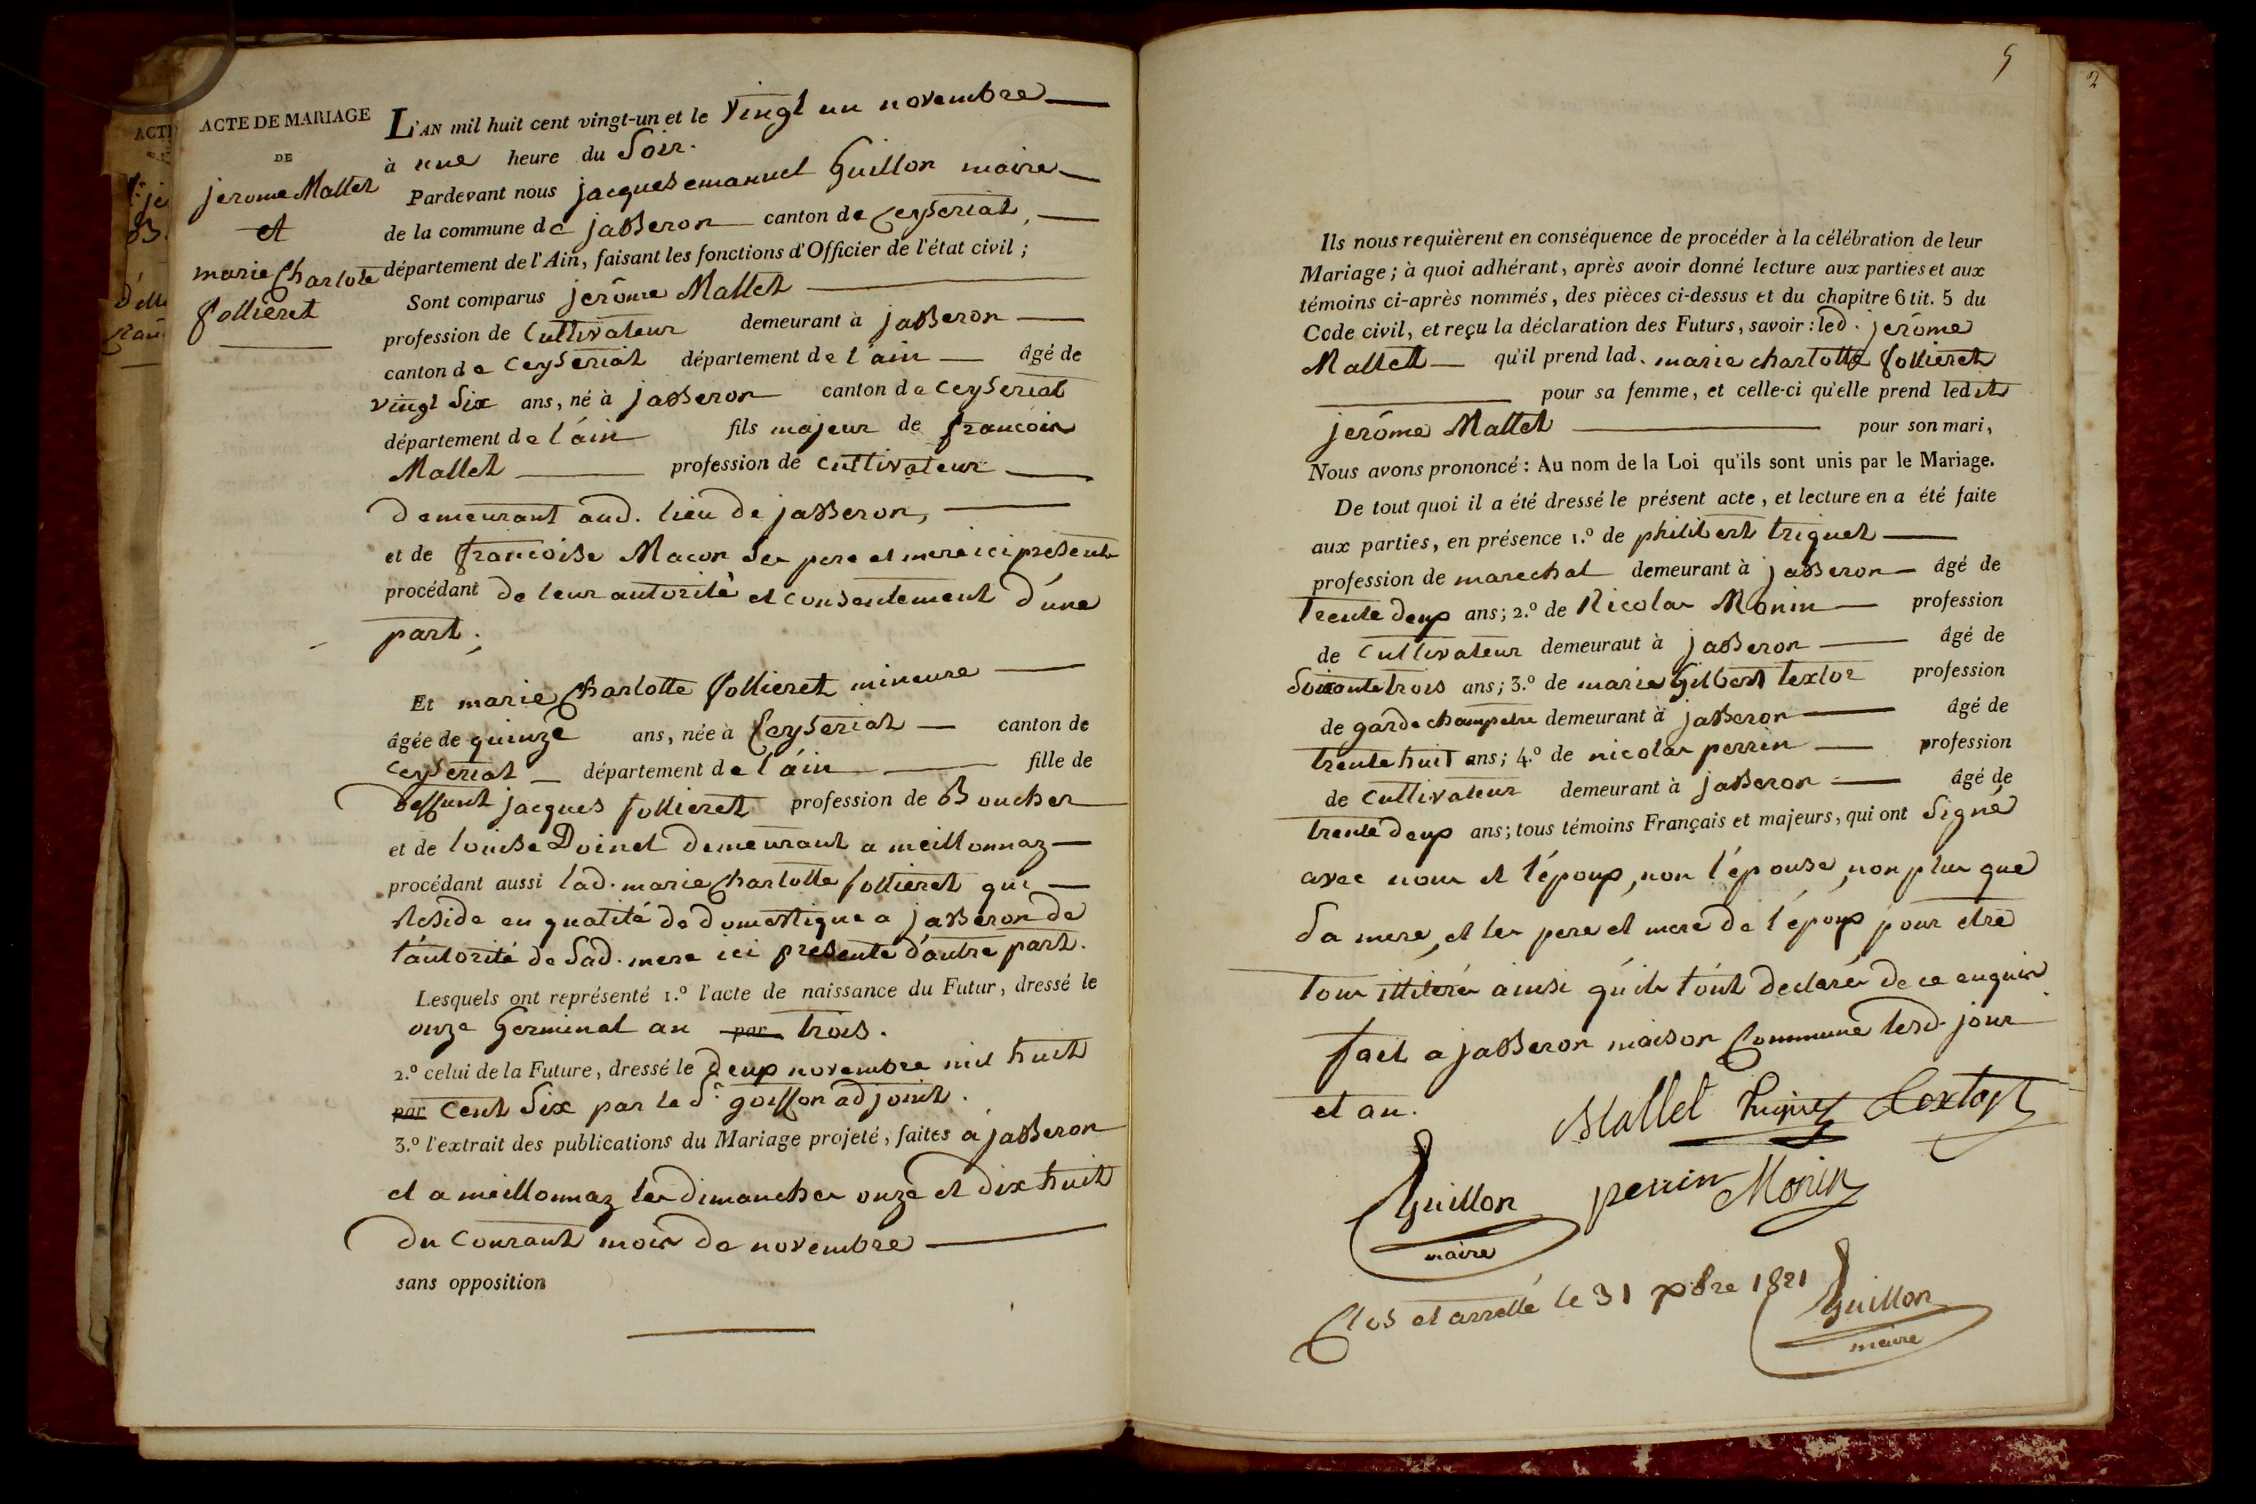 ACTE DE MARIAGE
DE
jerome Mallet
et
marie Charlote
follieret
L'AN mil huit cent vingt-un et le vingt un novembre
à une heure du Soir.
Pardevant nous jacques emanuel Guillon maire
de la commune de jasseron canton de Ceyseriat,
département de l'Ain, faisant les fonctions d'Officier de l'état civil ;
Sont comparus jerôme Mallet
profession de Cultivateur demeurant à jasseron
canton de Ceyseriat département de l'ain âgé de
vingt Six ans, né à jasseron canton de Ceyseriat
département de l'ain fils majeur de francois
Mallet profession de cultivateur
demeurant aud. lieu de jasseron,
et de francoise Macon Ses pere et mere ici presents
procédant de leur autorité et consentement d'une
part ;
Et marie Charlotte follieret mineure
âgée de quinze ans, née à Ceyseriat canton de
Ceyseriat département de l'ain fille de
deffunt jacques follieret profession de Boucher
et de louise Doinet demeurant a meillonnaz
procédant aussi lad. marie Charlotte follieret qui
Reside en qualité de domestique a jasseron de
l'autorité de Sad. mere ici presente d'autre part.
Lesquels ont représenté 1.º l'acte de naissance du Futur, dressé le
onze Germinal an par trois.
2.º celui de la Future, dressé le deux novembre mil huit
par Cent Six par le Sr. goiffon adjoint.
3.º l'extrait des publications du Mariage projeté, faites a jasseron
et a meillonnaz les dimanches onze et dix huit
du Courant mois de novembre
sans opposition
5
2
Ils nous requièrent en conséquence de procéder à la célébration de leur
Mariage ; à quoi adhérant, après avoir donné lecture aux parties et aux
témoins ci-après nommés, des pièces ci-dessus et du chapitre 6 tit. 5 du
Code civil, et reçu la déclaration des Futurs, savoir : led. jerôme
Mallet qu'il prend lad. marie charlotte follieret
pour sa femme, et celle-ci qu'elle prend ledit
jerôme Mallet pour son mari,
Nous avons prononcé : Au nom de la Loi qu'ils sont unis par le Mariage.
De tout quoi il a été dressé le présent acte, et lecture en a été faite
aux parties, en présence 1.º de philibert triquet
profession de marechal demeurant à jasseron âgé de
trente deux ans ; 2.º de Nicolas Monin profession
de Cultivateur demeurant à jasseron âgé de
Soixante trois ans ; 3.º de marie Gilbert textor profession
de garde champetre demeurant à jasseron âgé de
trente huit ans ; 4.º de nicolas perrin profession
de Cultivateur demeurant à jasseron âgé de
trente deux ans ; tous témoins Français et majeurs, qui ont Signé
avec nous et l'époux, non l'épouse, non plus que
Sa mere, et les pere et mere de l'époux pour etre
tous illiterés ainsi qu'ils l'ont declaré de ce enquis
fait a jasseron maison Commune lesd. jour
et an.
Mallet triquet textor
Guillon perrin Monin
maire
Clos et arretté le 31 xbre 1821
Guillon
maire